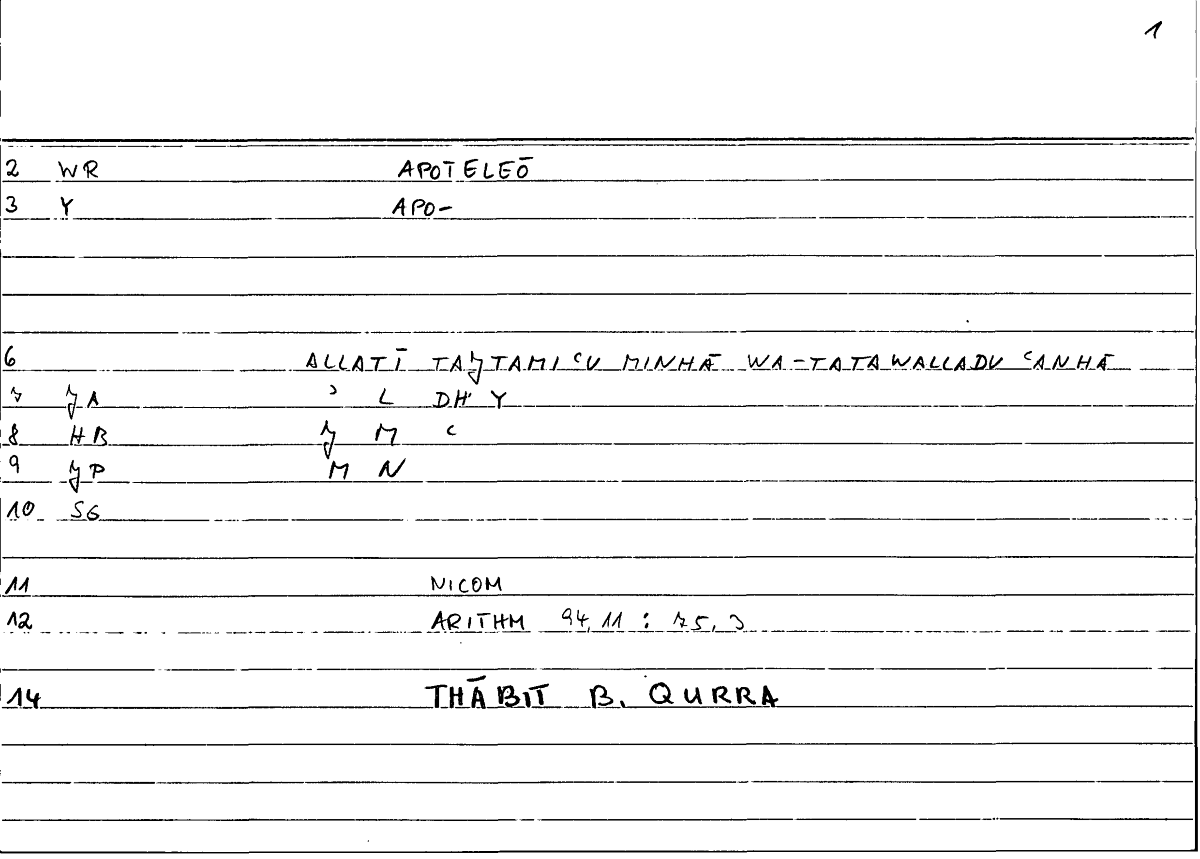 1
2 WR APOTELEŌ
3 Y APO-
6 ALLATĪ TAJTAMIʿU MINHĀ WA-TATAWALLADU ʿANHĀ
7 JA ʾ L DH Y
8 HB J M ʿ
9 JP M N
10 SG
11 NICOM
12 ARITHM 94,11 : 75,3
14 THĀBIT B. QURRA